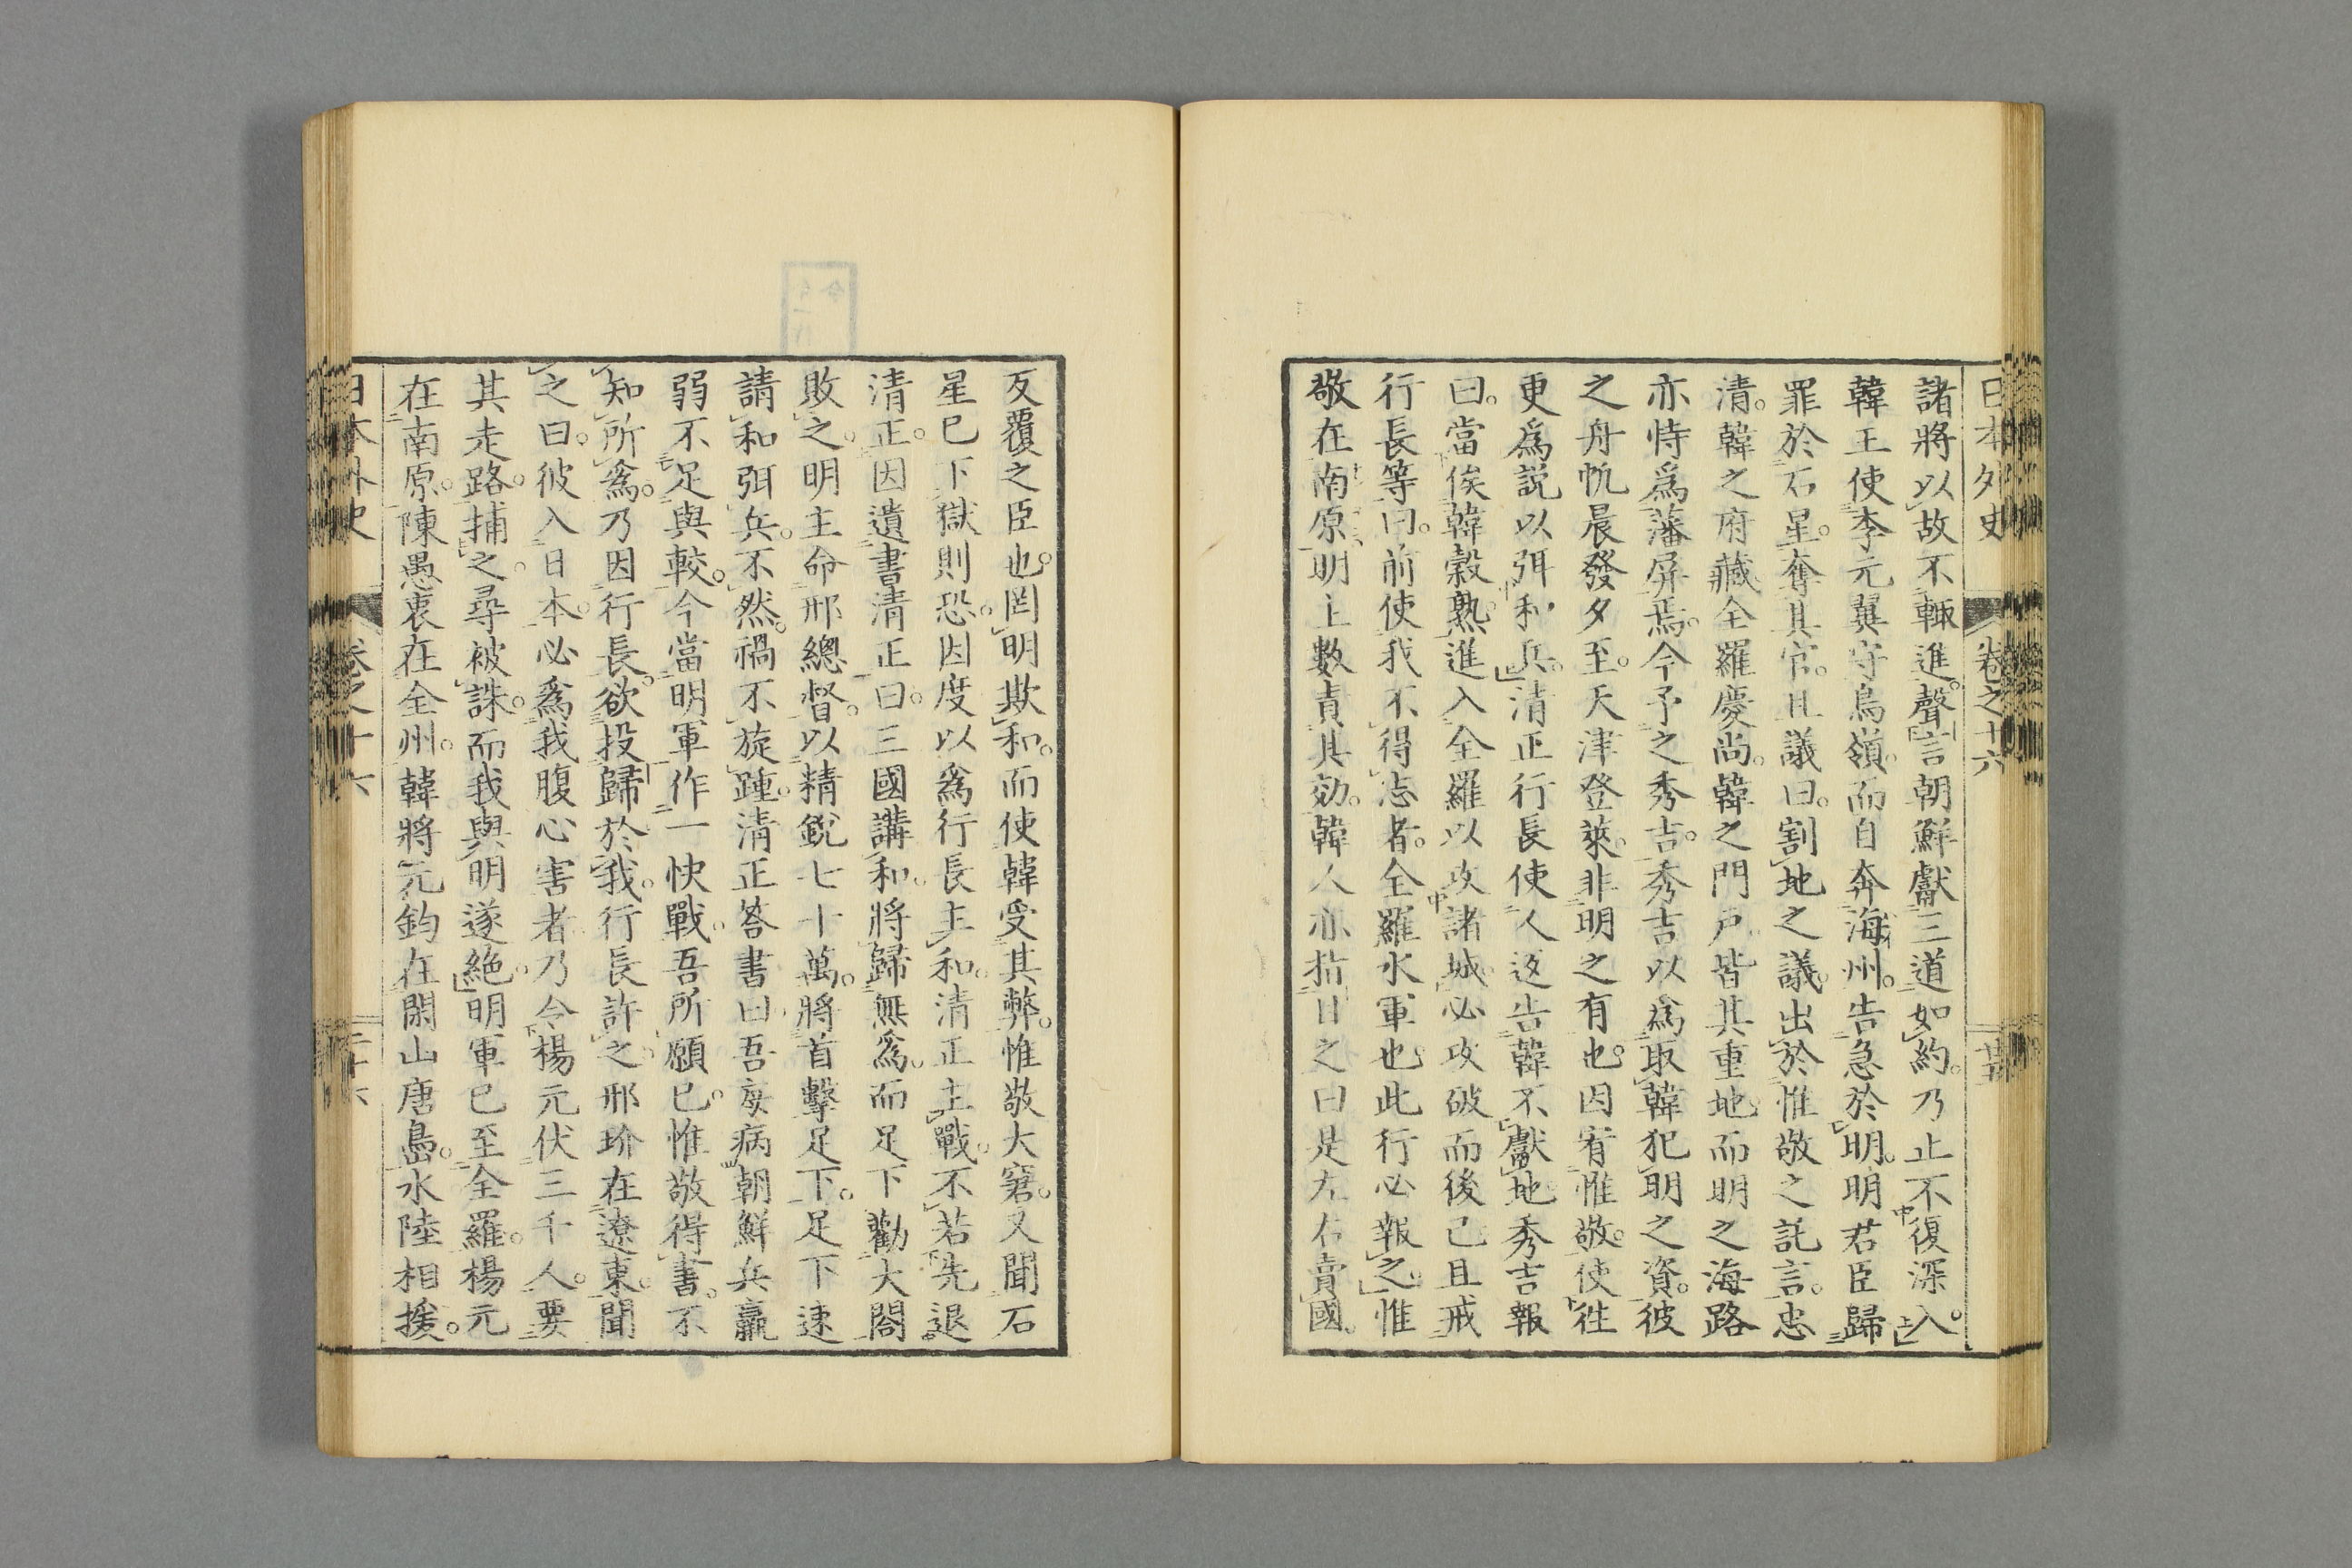 日本外史 卷之十六 廿五
諸將以故不輙進。聲言朝鮮獻三道如約。乃止不復深入。
韓王使李元翼守鳥嶺。而自奔海州。告急於明。明君臣歸
罪於石星。奪其官。且議曰。割地之議。出於惟敬之託言。忠
清。韓之府藏。全羅慶尚。韓之門戶。皆其重地。而明之海路
亦恃爲藩屏焉。今予之秀吉。秀吉以爲取韓犯明之資。彼
之舟帆晨發夕至。天津登萊。非明之有也。因宥惟敬。使往
更爲説以弭和兵。清正行長使人返告韓不獻地。秀吉報
曰。當俟韓穀熟。進入全羅以攻諸城。必攻破而後已。且戒
行長等曰。前使我不得志者。全羅水軍也。此行必報之。惟
敬在南原。明主數責其効。韓人亦指目之曰。是左右賣國
反覆之臣也。罔明欺和。而使韓受其弊。惟敬大窘。又聞石
星已下獄則恐。因度以爲行長主和。清正主戰。不若先退
清正。因遺書清正曰。三國講和。將歸無爲。而足下勸大閤
敗之。明主命邢總督。以精銳七十萬。將首擊足下。足下速
請和弭兵。不然。禍不旋踵。清正答書曰。吾夜病朝鮮兵羸
弱不足與較。今當明軍作一快戰。吾所願已。惟敬得書。不
知所爲。乃因行長。欲投歸於我。行長許之。邢玠在遼東。聞
之曰。彼入日本。必爲我腹心害者。乃令楊元伏三千人。要
其走路。捕之。尋被誅。而我與明遂絶。明軍已至全羅。楊元
在南原。陳愚衷在全州。韓將元鈞在閑山唐島。水陸相援。
日本外史 卷之十六 二十六